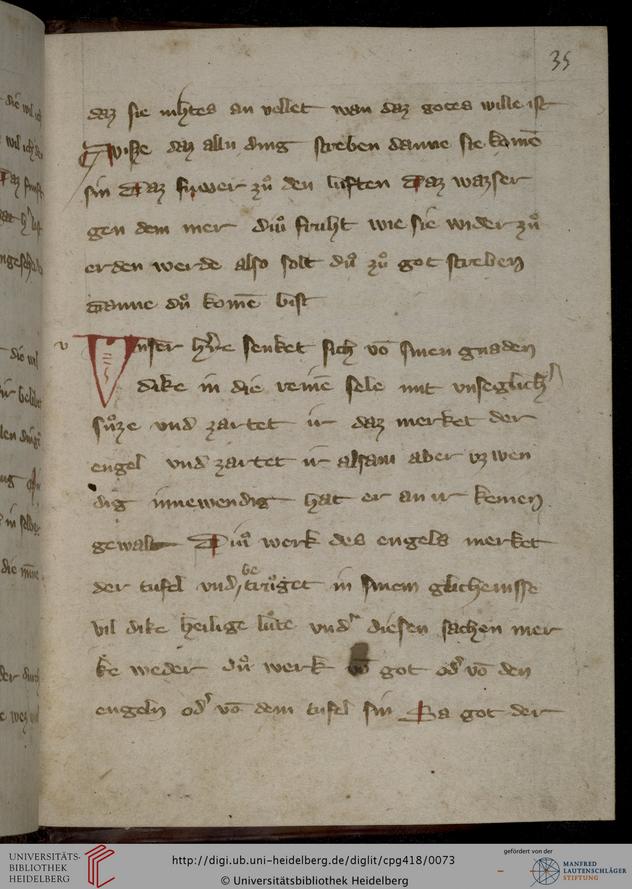 35
daz sie nihtes an vellet wan daz gotes wille ist
Wisse daz allu ding streben danne sie komē
sin Daz fuwer zuͦ den luften Daz wazser
gen dem mer diuͦ fruht wie sie wider zuͦ
erden werde also solt duͦ zuͦ got streben
danne duͦ komē bist
v Vnser hr̄re senket sich vō sinen gnaden
dike in die reinē sele mit vnseglichʾ
suͦze vnd zartet ir daz merket der
engel vnd zartet ir alsam aber vzwen
dig innewendig hat er an ir keinen
gewalt Diuͦ werk des engels merket
der tufel vnd betruͦget in sinem glichenisse
vil dike heilige luͦte vndʾ diesen sachen mer
ke weder duͦ werk vō got odʾ vō den
engeln odʾ vō dem tufel sin Da got der
die wil ich
wil ich
Daz
die wil
die
UNIVERSITÄTS-
BIBLIOTHEK
HEIDELBERG
http://digi.ub.uni-heidelberg.de/diglit/cpg418/0073
© Universitätsbibliothek Heidelberg
gefördert von der
MANFRED
LAUTENSCHLÄGER
STIFTUNG